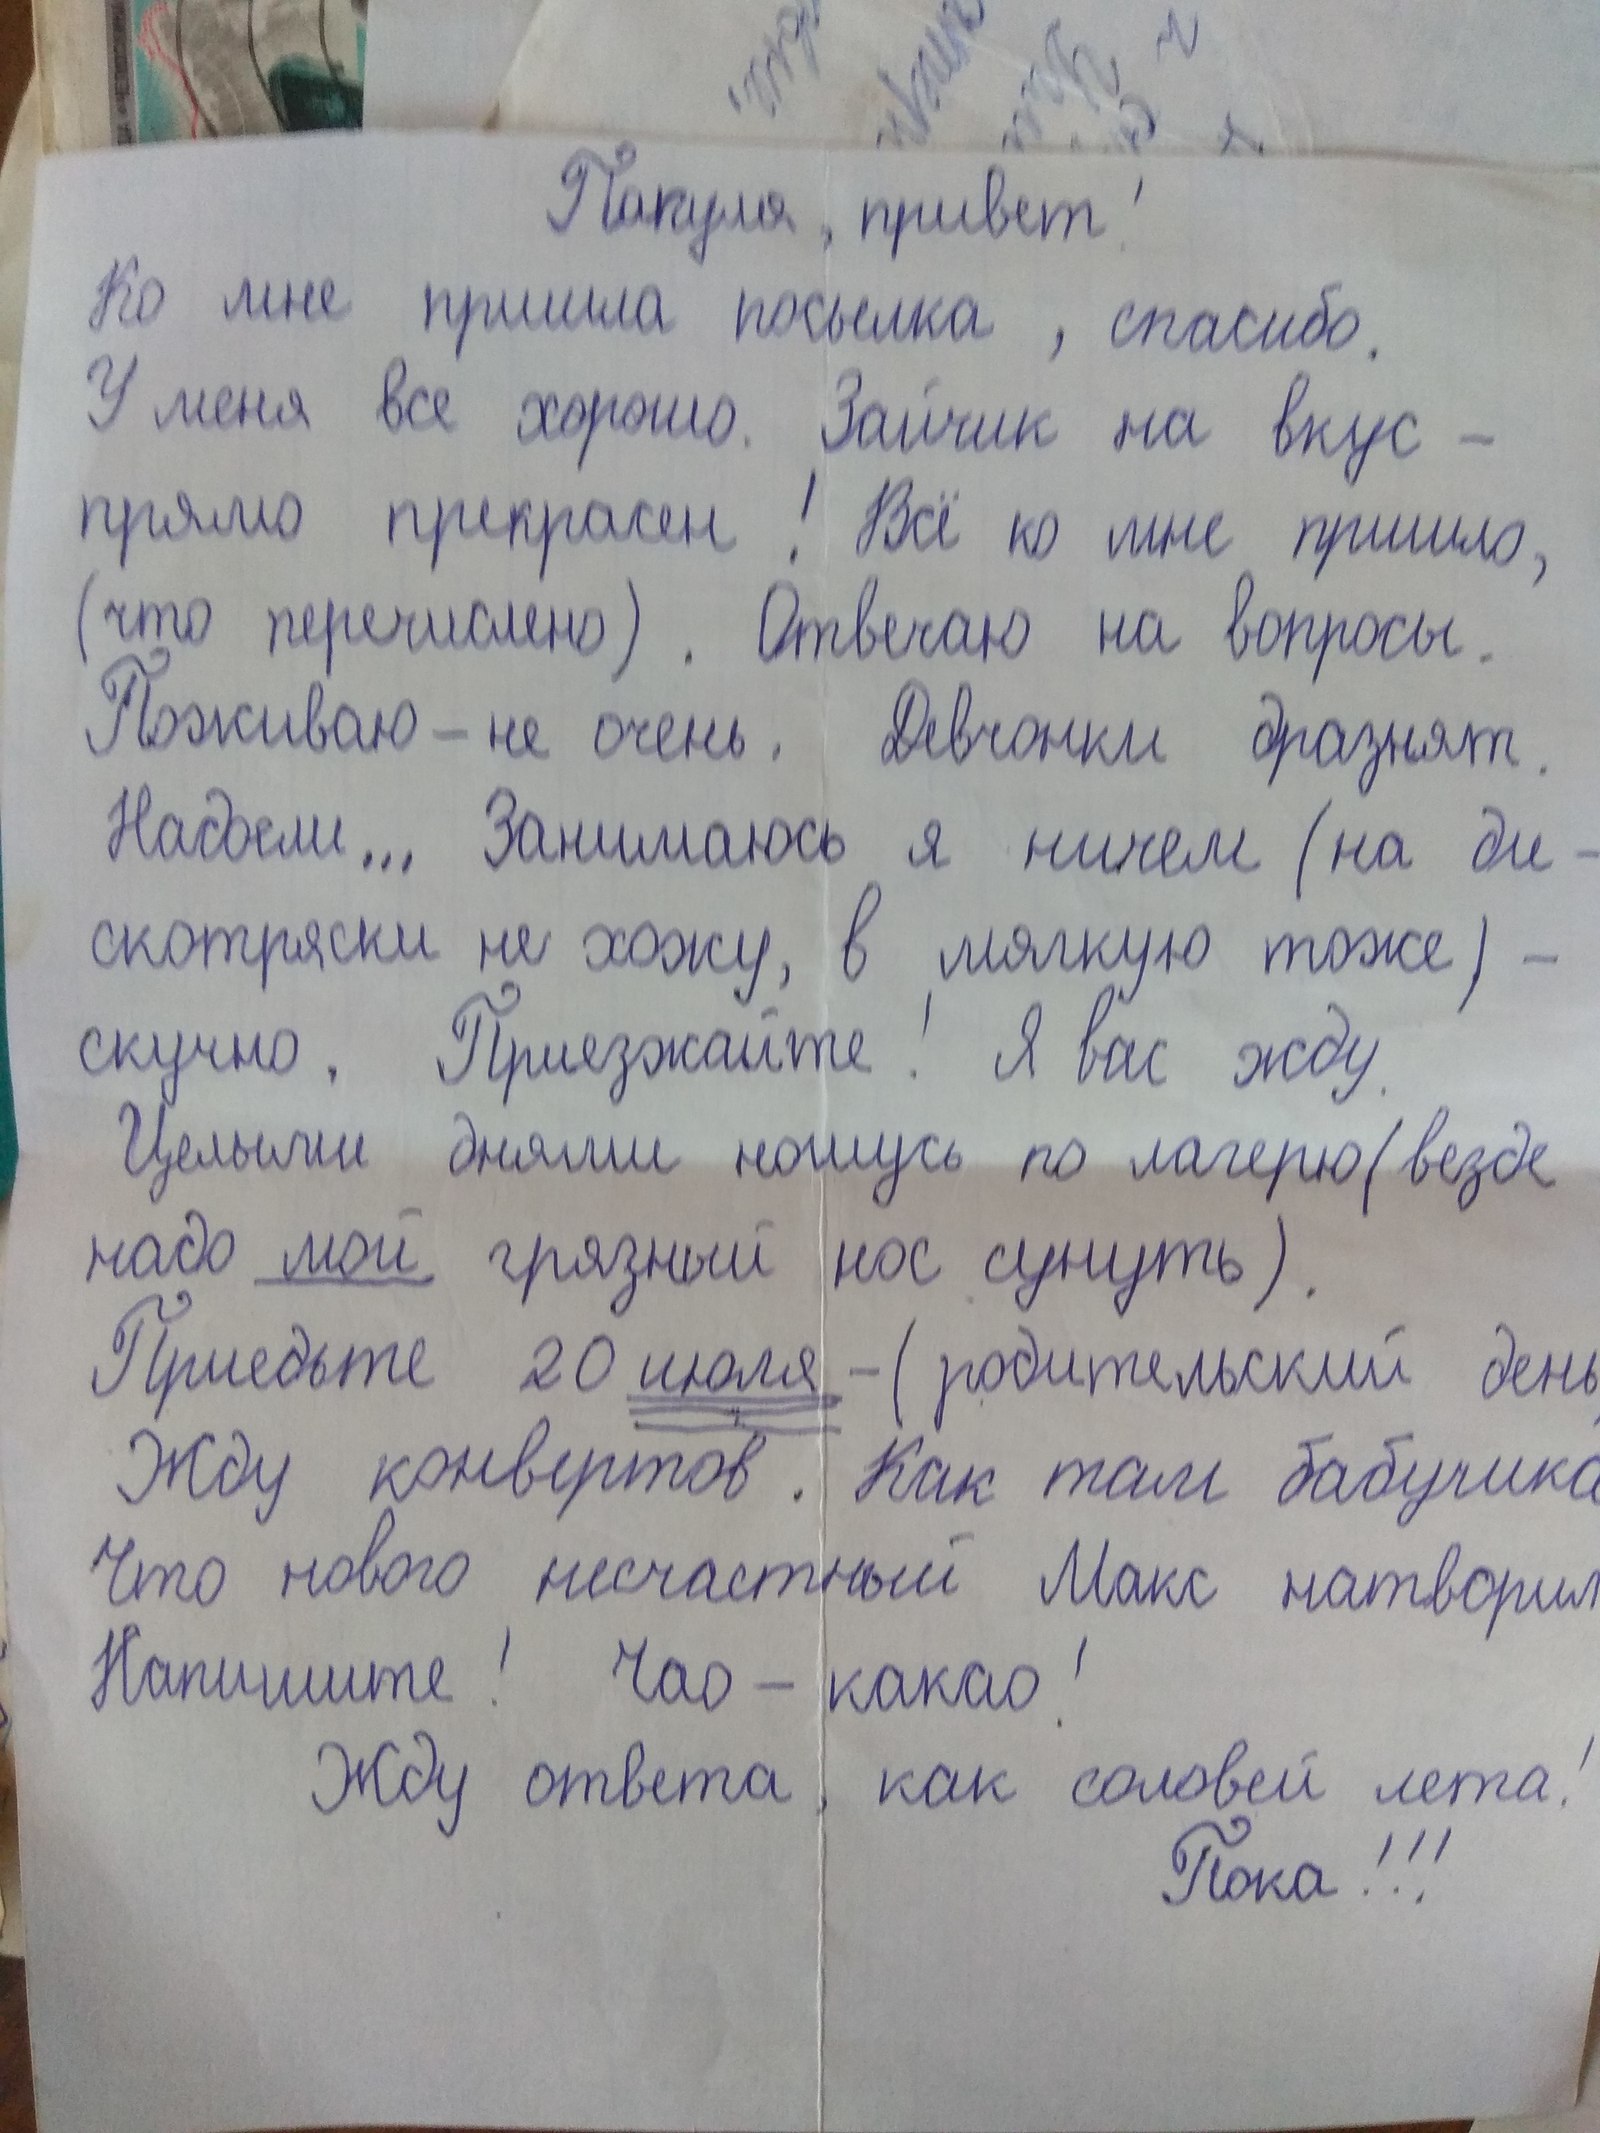 Папуля, привет!
Ко мне пришла посылка, спасибо.
У меня все хорошо. Зайчик на вкус –
прямо прекрасен! Всё ко мне пришло,
(что перечислено). Отвечаю на вопросы.
Поживаю – не очень. Девчонки дразнят.
Надоели... Занимаюсь я ничем (на ди-
скотряски не хожу, в мялкую тоже) –
скучно. Приезжайте! Я вас жду.
Целыми днями ношусь по лагерю (везде
надо мой грязный нос сунуть).
Приедьте 20 июля – (родительский день
Жду конвертов. Как там бабучика
Что нового несчастный Макс натворил
Напишите! Чао – какао!
Жду ответа, как соловей лета!
Пока!!!